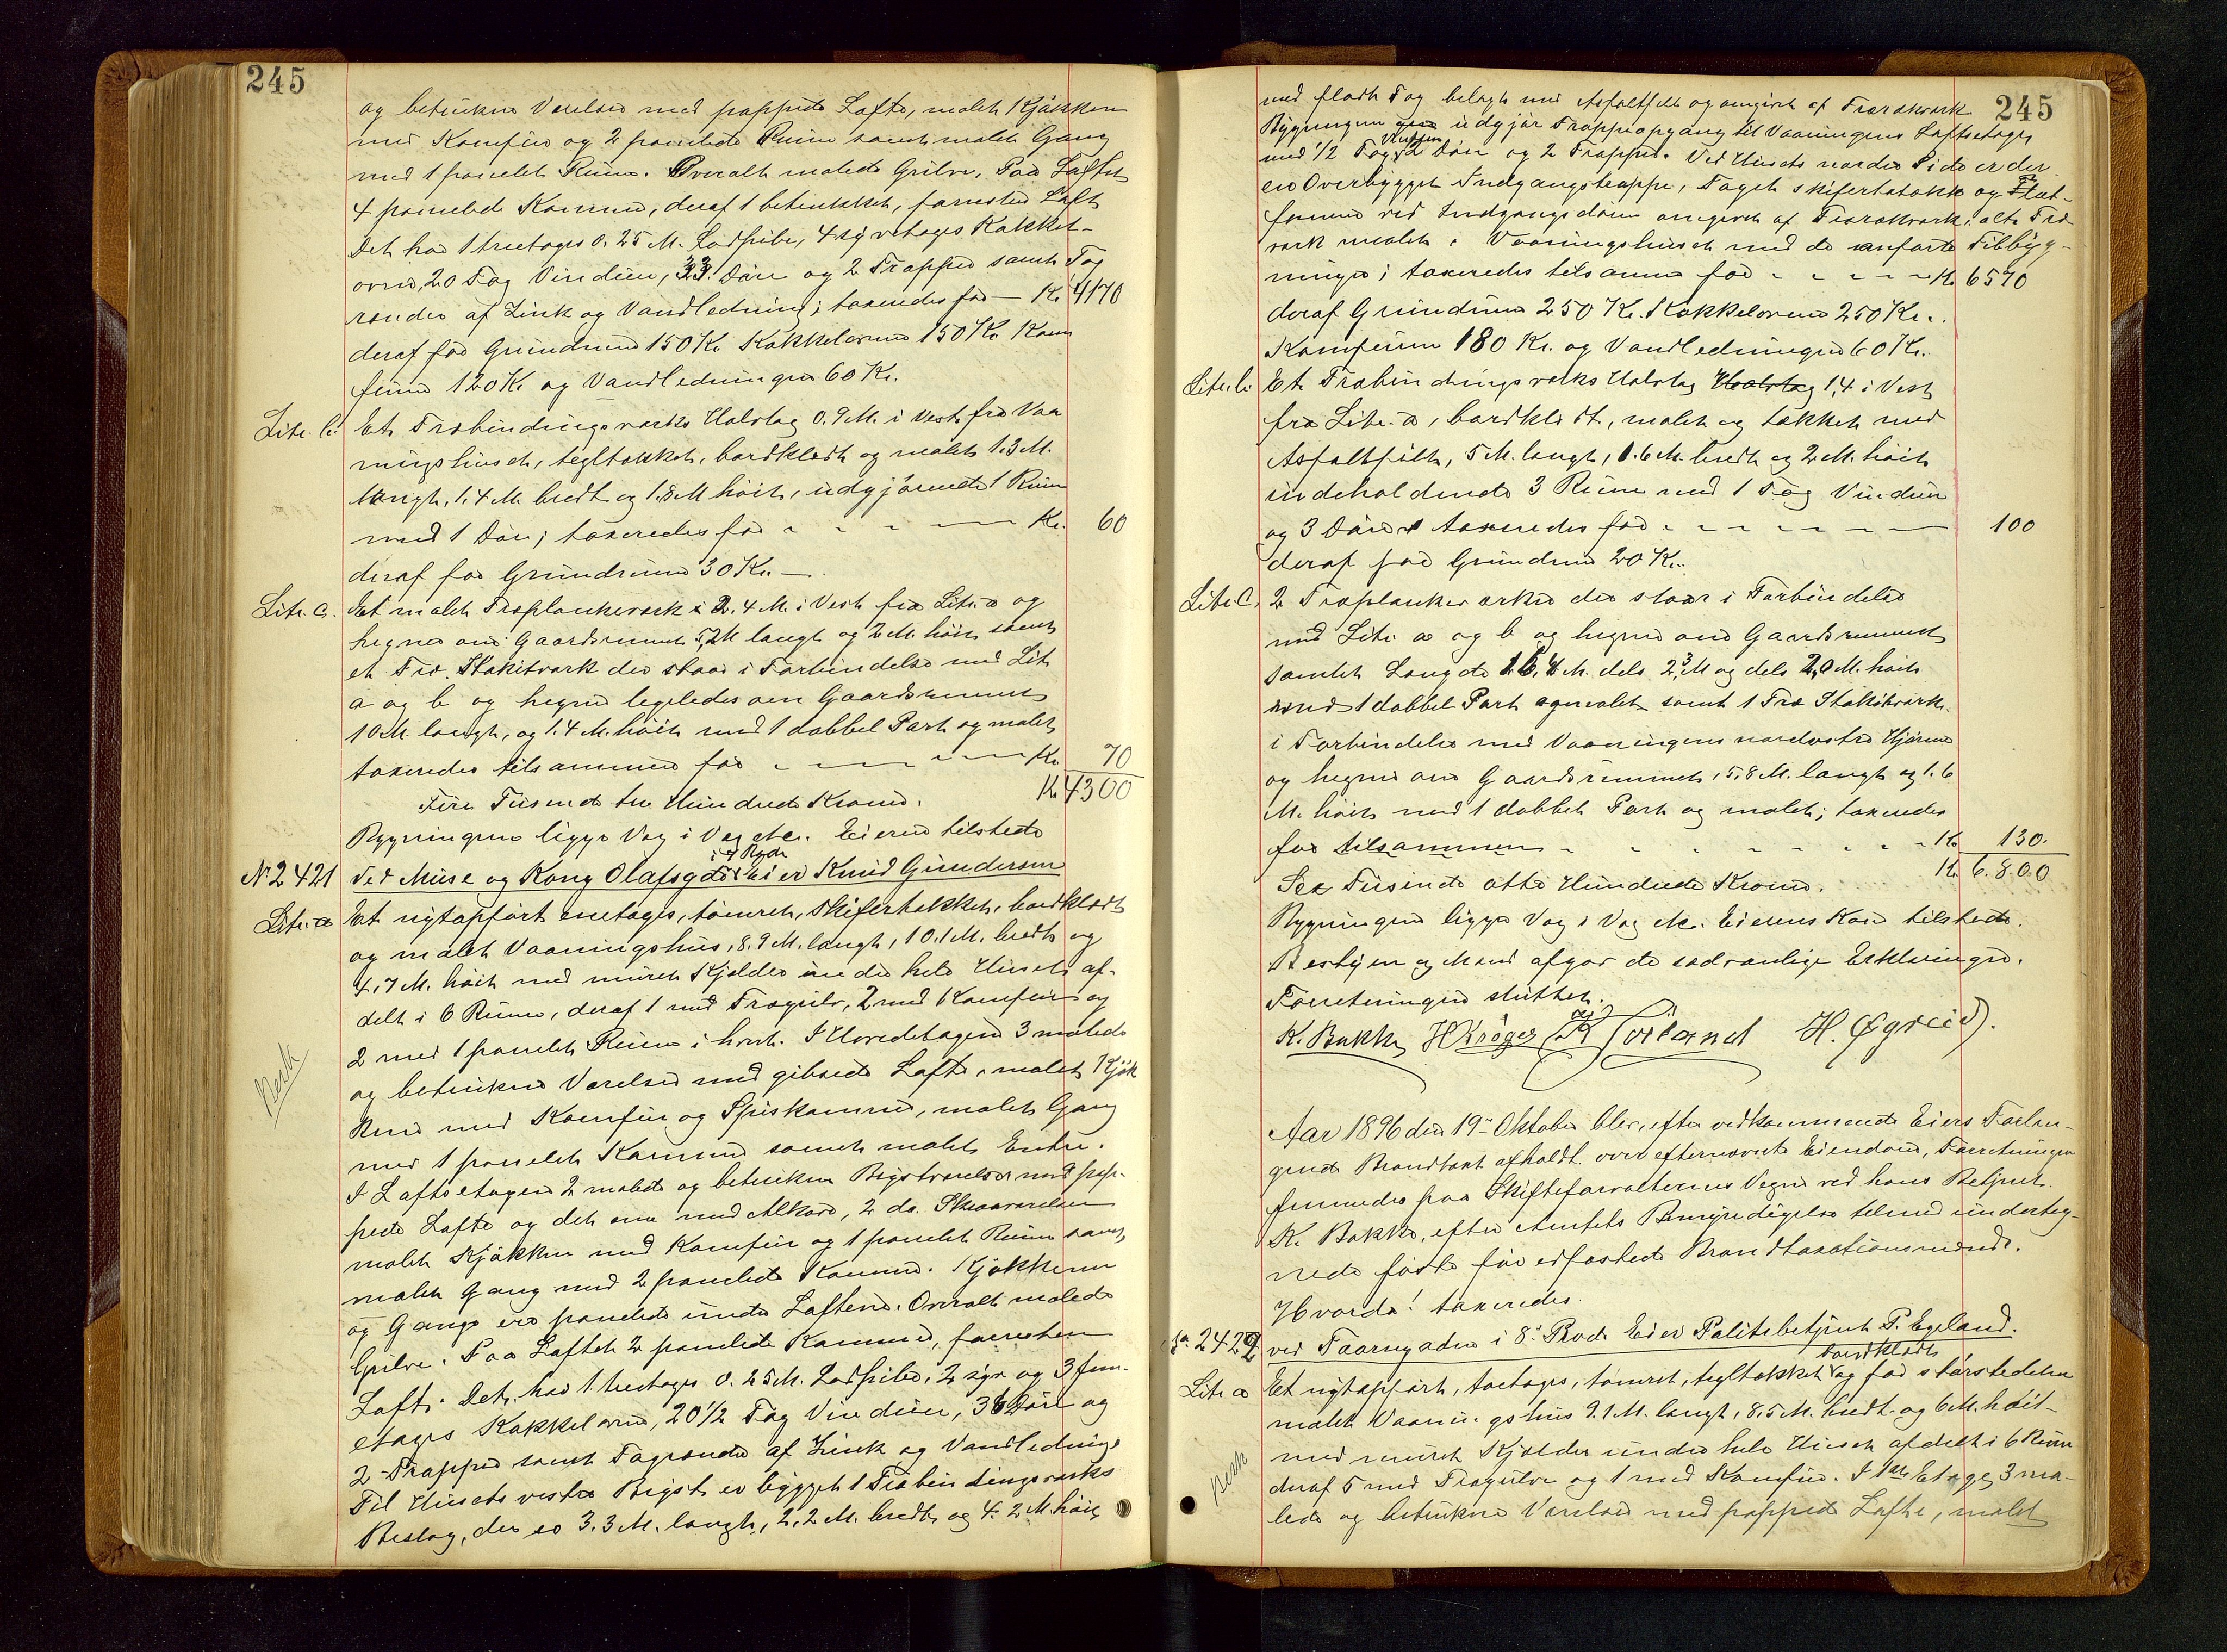 245
og betrukne Værelser med pappede Lofte, malet Kjøkken
med Komfur og 2 panelede Rum samt malet Gang
med 1 panelet Rum. Overalt malede Gulve. Paa Loftet
4 panelede Kammer, deraf 1 betrukket, forresten Loft
Det har 1 treetages 0.25 M. Lodpibe, 4 syvetages Kakkel-
ovne, 20 Fag Vinduer, 23 Døre og 2 Trapper samt Tag
render af Zink og Vandledning; taxeredes for — Kr. 4170
deraf for Grundmur 150 Kr. Kakkelovne 150 Kr. Kom
furene 120 Kr. og Vandledningen 60 Kr.
Litr. b. Et Træbindingsværks Halvtag 0.9 M. i Vest fra Vaa
ningshuset, tegltækket, bordklædt og malet 1.3 M.
langt, 1.4 M. bredt og 1.8 M høit, udgjørende 1 Rum
med 1 Dør; taxeredes for - - - - — Kr. 60
deraf for Grundmur 30 Kr. —
Litr. c. Et malet Træplankeværk 2.4 M. i Vest fra Litr. a og
hegner om Gaardsrummet 5,2 M langt og 2 M. høit samt
et Træ Stakitværk der staar i Forbindelse med Lit
a og b og hegner ligeledes om Gaardsrummet
10 M. langt, og 1.4 M. høit med 1 dobbel Port og malet
taxeredes tilsammen for - - - - — Kr. 70
Fire Tusinde tre Hundrede Kroner. Kr. 4300
Bygningerne ligge Væg i Væg etc. Eieren tilstede
i 4 Rode
No 2421 Ved Muse og Kong Olafsgade Eier Knud Gundersen
Litr. a Et nytopført enetages, tømret, skifertækket, bordklædt
og malet Vaaningshus, 8.9 M. langt, 10.1 M. bredt og
4.7 M. høit med muret Kjælder under hele Huset af-
delt i 6 Rum, deraf 1 med Trægulv, 2 med Komfur og
2 med 1 panelet Rum i hvert. I Hovedetagen 3 malede
og betrukne Værelser med gibsede Lofte, malet Kjøk
ken med Komfur og Spiskammer, malet Gang
med 1 panelet Kammer samt malet Entre.
I Loftsetagen 2 malede og betrukne Kvistværelser med pap-
pede Lofte og det ene med Alkove, 2 do. Skraaværelser
malet Kjøkken med Komfur og 1 panelet Rum samt
malet Gang med 2 panelede Kammer. Kjøkkenene
og Gange ere panelede under Loftene. Overalt malede
Gulve. Paa Loftet 2 panelede Kammer, forresten
Loft. Det har 1 treetages 0.25 M. Lodpibe, 2 syv og 3 fem-
etages Kakkelovne, 20 1/2 Fag Vinduer, 36 Døre og
2 Trapper samt Tagrender af Zink og Vandledning.
Til Husets vestre Kvist er bygget 1 Træbindingsværks
Beslag, der er 3.3 M. langt, 2.2 M. bredt, og 4.2 M. høit
Besk
245
med fladt Tag belagt med Asfaltfilt og omgivet af Træværk
Bygningen udgjør Trappeopgang til Vaaningens Loftsetage
med 1/2 Fag Vinduer 2 Døre og 2 Trapper. Ved Husets nordre Side er der
en Overbygget Indgangstrappe, Taget skifertækket og Plat-
formen ved Indgangsdøren omgivet af Træværk: alt Træ-
værk malet. Vaaningshuset med de anførte Tilbyg-
ninger; taxeredes tilsammen for - - - - — Kr. 6570
deraf Grundmur 250 Kr. Kakkelovne 250 Kr.
Komfurene 180 Kr. og Vandledningen 60 Kr.
Litr. b. Et Træbindingsværks Halvtag Halvtag 1,4 i Vest
fra Litr. a, bordklædt, malet og tækket med
Asfaltfilt, 5 M. langt, 1.6 M. bredt og 2 M. høit
indeholdende 3 Rum med 1 Fag Vinduer
og 3 Døre; taxeredes for - - - - — 100
deraf for Grundmur 20 Kr.
Litr. C. 2 Træplankeværker der staar i Forbindelse
med Litr. a og b og hegner om Gaardsrummet
samlet Længde 16,4 M. dels 2,3 M og dels 2,0 M. høit
med 1 dobbel Port og malet samt 1 Træ Stakitværk
i Forbindelse med Vaaningens nordvestre Hjørne
og hegner om Gaardsrummet, 5,8 M. langt og 1.6
M. høit med 1 dobbelt Port og malet; taxeredes
for tilsammen - - - - - - - Kr. 130.
Sex Tusinde otte Hundrede Kroner. Kr. 6.800
Bygningerne ligge Væg i Væg etc. Eierens Kone tilstede.
Bestyrer og Mænd afgav de sædvanlige Erklæringer.
Forretningen sluttet.
K. Bakke HKrøger H. Øgreid.
Aar 1896 den 19de Oktober blev, efter vedkommende Eiers Forlan-
gende Brandtaxt afholdt over efternævnte Eiendom, Forretningen
fremmedes paa Skifteforvalterens Vegne ved hans Betjent
K. Bakke, efter Amtets Bemyndigelse tilmed underteg-
nede faste før edfæstede Brandtaxationsmænd.
Hvorda! taxeredes.
No. 2422 ved Taarngaden i 8' Rode Eier Politibetjent P. Egeland.
bordklædt
Litr. a Et nytopført, toetages, tømret, tegltækket og for størstedelen
malet Vaaningshus 9.1 M. langt, 8.5 M. bredt og 6 M. høit
med muret Kjælder under hele Huset afdelt i 6 Rum
deraf 5 med Trægulve og 1 med Komfur. I 1ste Etage 3 ma-
lede og betrukne Værelser med pappede Lofte, malet
Besk